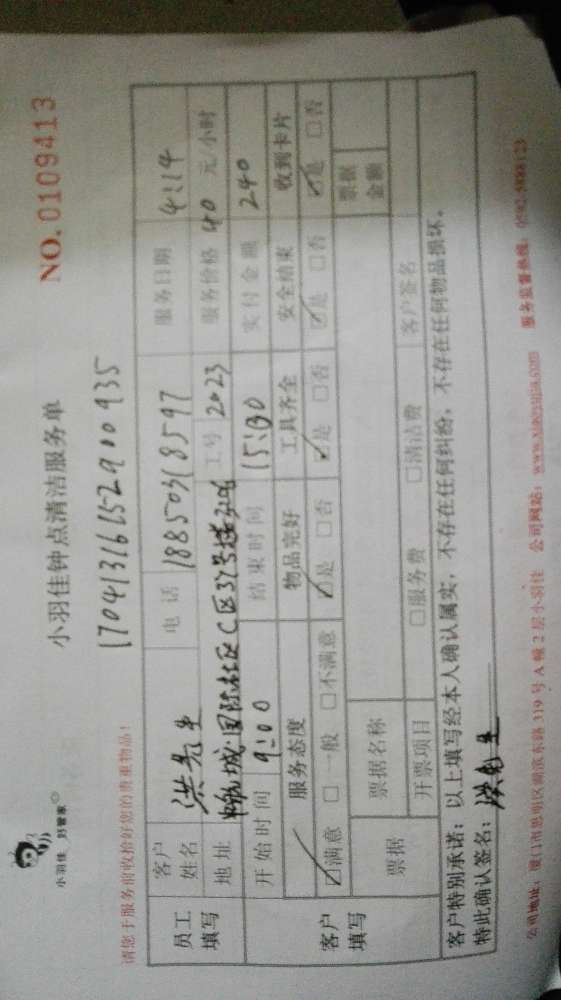 小羽佳 好管家
小羽佳钟点清洁服务单
NO.0109413
17041316152900935
请您于服务前收拾好您的贵重物品!
员工填写
客户姓名 洪先生 电话 18850318597 服务日期 4:14
地址 国际社区C区37号楼 工号 2023 服务价格 40 元/小时
客户填写
开始时间 9:00 结束时间 15:30 实付金额 240
服务态度 物品完好 工具齐全 安全结束 收到卡片
☑满意 □一般 □不满意 ☑是 □否 ☑是 □否 ☑是 □否 ☑是 □否
票据 票据名称 票据金额
开票项目 □服务费 □清洁费 客户签名
客户特别承诺:以上填写经本人确认属实,不存在任何纠纷,不存在任何物品损坏。
特此确认签名:洪先生
公司地址:厦门市思明区湖滨东路319号A幢2层小羽佳 公司网站: 服务监督热线:0592-5888123